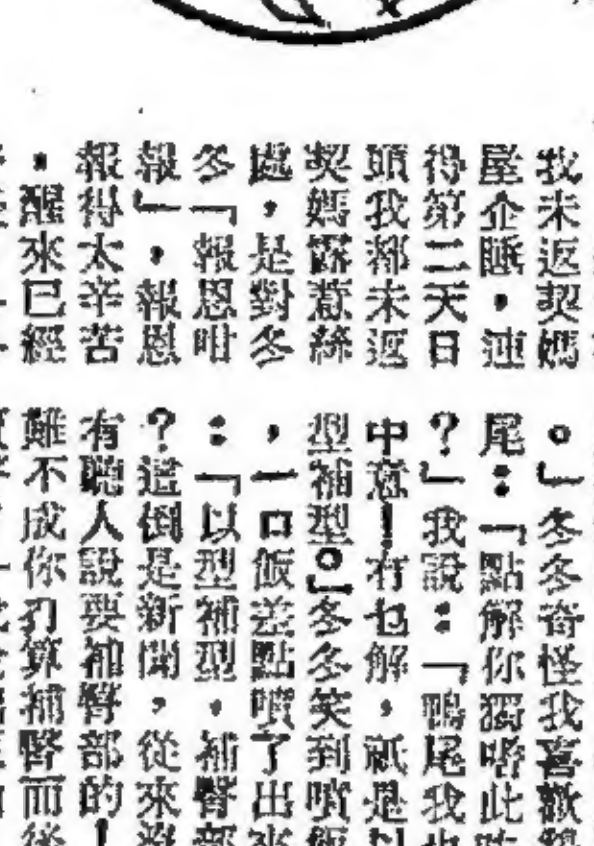 我未返契媽
屋企瞓，連
得第二天日
頭我都未返
契媽
處，是對冬
冬「報恩咁
報」，報恩
報得太辛苦
，醒來已經
。」冬冬奇怪我喜歡
尾：「點解你獨嗜此
？」我說：「鴨尾我
中意！冇乜解，祇是以
型補型。」冬冬笑到噴飯
，一口飯差點噴了出來
：「以型補型，補臀部
？這倒是新聞，從來
有聽人說要補臀部的！
難不成你打算補臀而後